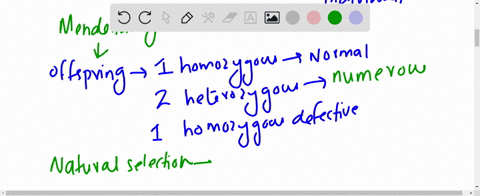 offspring → 1 homozygous → Normal
2 heterozygous → numerous
1 homozygous defective
Natural selection—